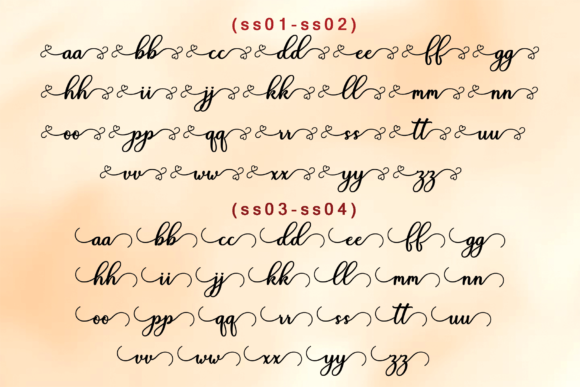 (ss01-ss02)
aa bb cc dd ee ff gg
hh ii jj kk ll mm nn
oo pp qq rr ss tt uu
vv ww xx yy zz
(ss03-ss04)
aa bb cc dd ee ff gg
hh ii jj kk ll mm nn
oo pp qq rr ss tt uu
vv ww xx yy zz